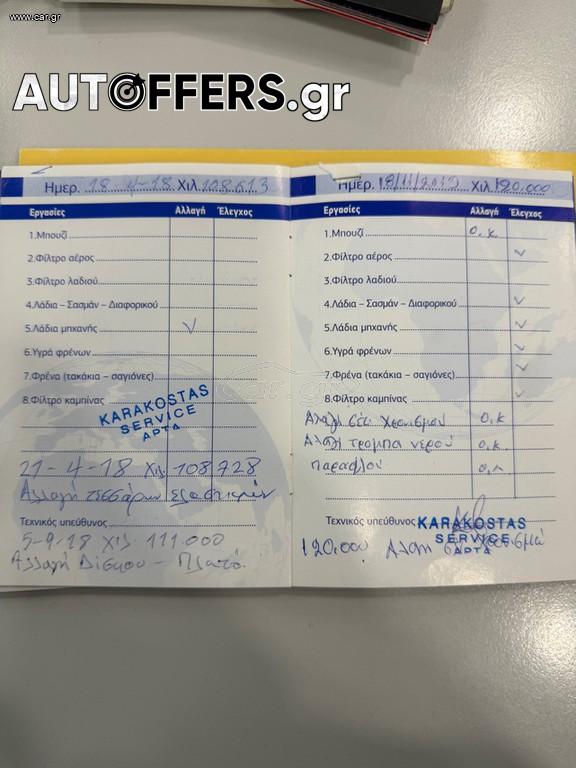 www.car.gr
AUTOFFERS.gr
Ημερ. 18-4-18 Χιλ. 108613
Εργασίες Αλλαγή Έλεγχος
1.Μπουζί
2.Φίλτρο αέρος
3.Φίλτρο λαδιού
4.Λάδια – Σασμάν – Διαφορικού
5.Λάδια μηχανής ✓
6.Υγρά φρένων
7.Φρένα (τακάκια – σαγιόνες)
8.Φίλτρο καμπίνας
KARAKOSTAS
SERVICE
ΑΡΤΑ
21-4-18 Χιλ 108728
Αλλαγή τεσσάρων ελαστικών
Τεχνικός υπεύθυνος
5-9-18 Χιλ. 111.000
Αλλαγή Δίσκου – Πλατό
Ημερ. Χιλ. 120.000
Εργασίες Αλλαγή Έλεγχος
1.Μπουζί Ο.Κ
2.Φίλτρο αέρος ✓
3.Φίλτρο λαδιού
4.Λάδια – Σασμάν – Διαφορικού ✓
5.Λάδια μηχανής ✓
6.Υγρά φρένων ✓
7.Φρένα (τακάκια – σαγιόνες) ✓
8.Φίλτρο καμπίνας ✓
Αλλαγή σέτ χρονισμού Ο.Κ
Αλλαγή τρομπα νερού Ο.Κ.
Παραφλού Ο.Κ
Τεχνικός υπεύθυνος
KARAKOSTAS
SERVICE
ΑΡΤΑ
120.000